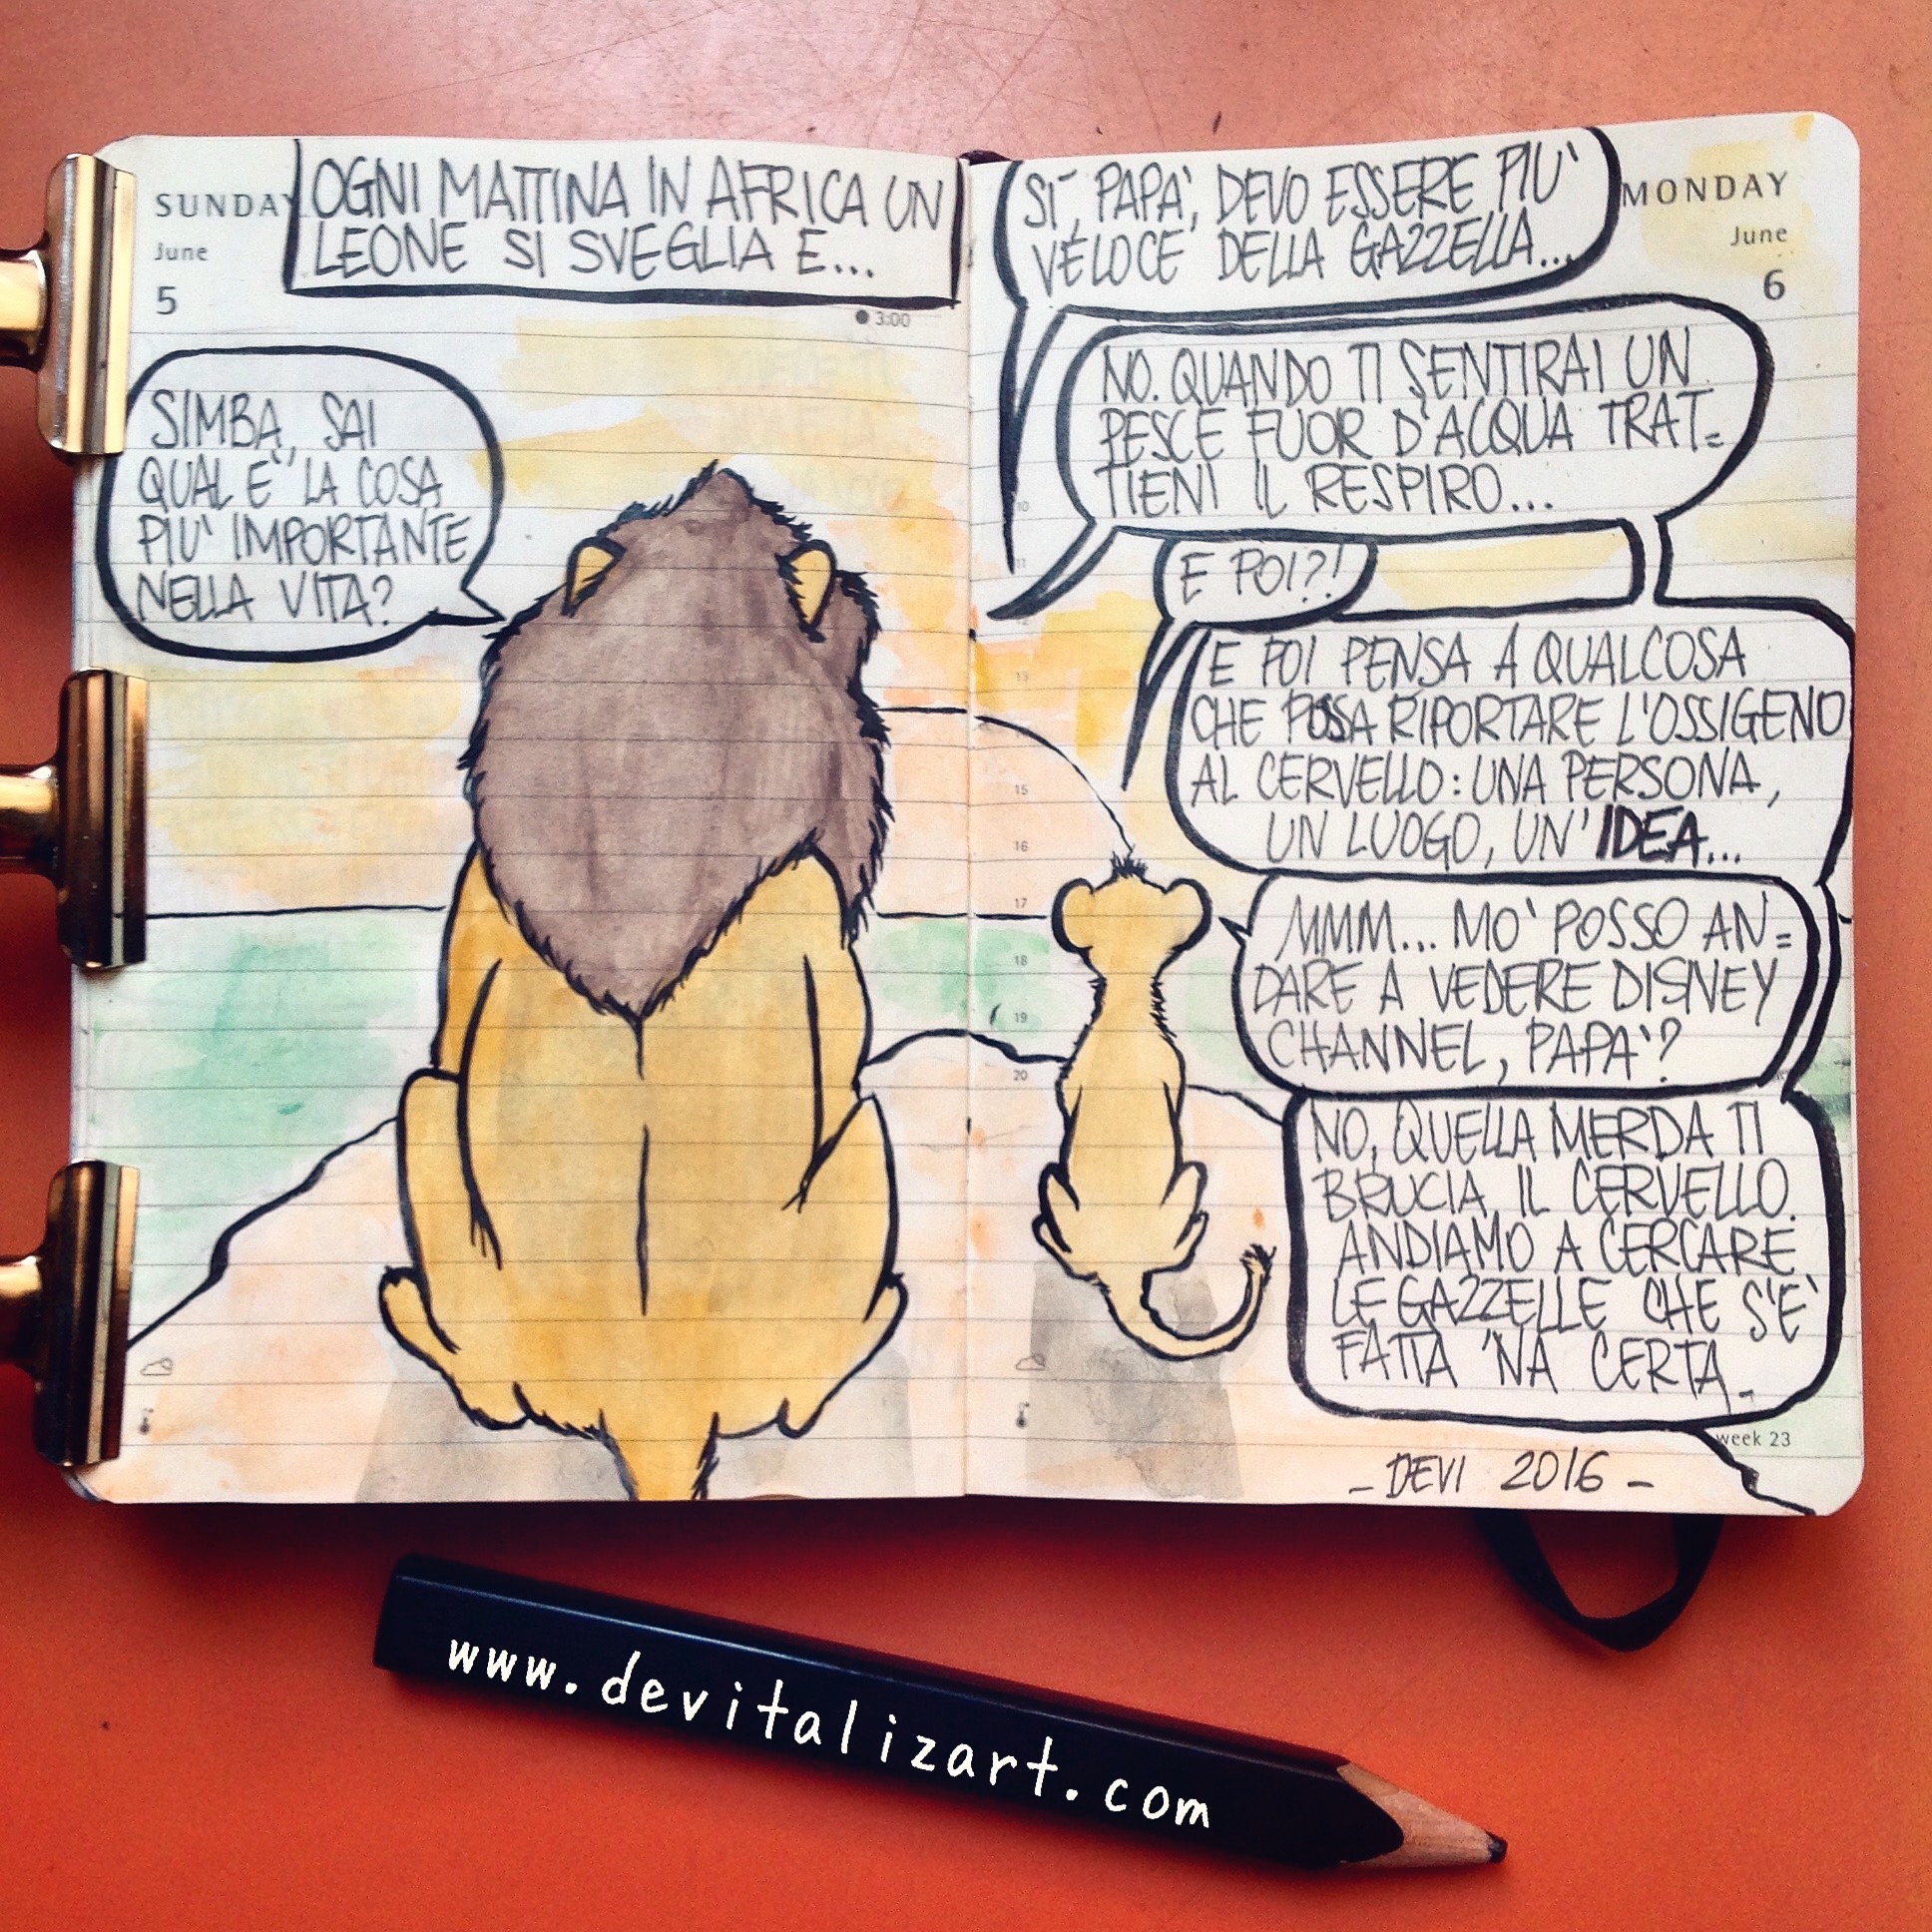 SUNDAY
June
5
OGNI MATTINA IN AFRICA UN
LEONE SI SVEGLIA E...
3:00
SIMBA, SAI
QUAL E' LA COSA
PIU' IMPORTANTE
NELLA VITA?
MONDAY
June
6
SI', PAPA', DEVO ESSERE PIU'
VELOCE DELLA GAZZELLA...
NO. QUANDO TI SENTIRAI UN
PESCE FUOR D'ACQUA TRAT=
TIENI IL RESPIRO...
E POI?!
E POI PENSA A QUALCOSA
CHE POSSA RIPORTARE L'OSSIGENO
AL CERVELLO: UNA PERSONA,
UN LUOGO, UN'IDEA...
MMM... MO' POSSO AN=
DARE A VEDERE DISNEY
CHANNEL, PAPA'?
NO, QUELLA MERDA TI
BRUCIA IL CERVELLO.
ANDIAMO A CERCARE
LE GAZZELLE CHE S'E'
FATTA 'NA CERTA_
10
11
12
13
15
16
17
18
19
20
week 23
- DEVI 2016 -
www.devitalizart.com